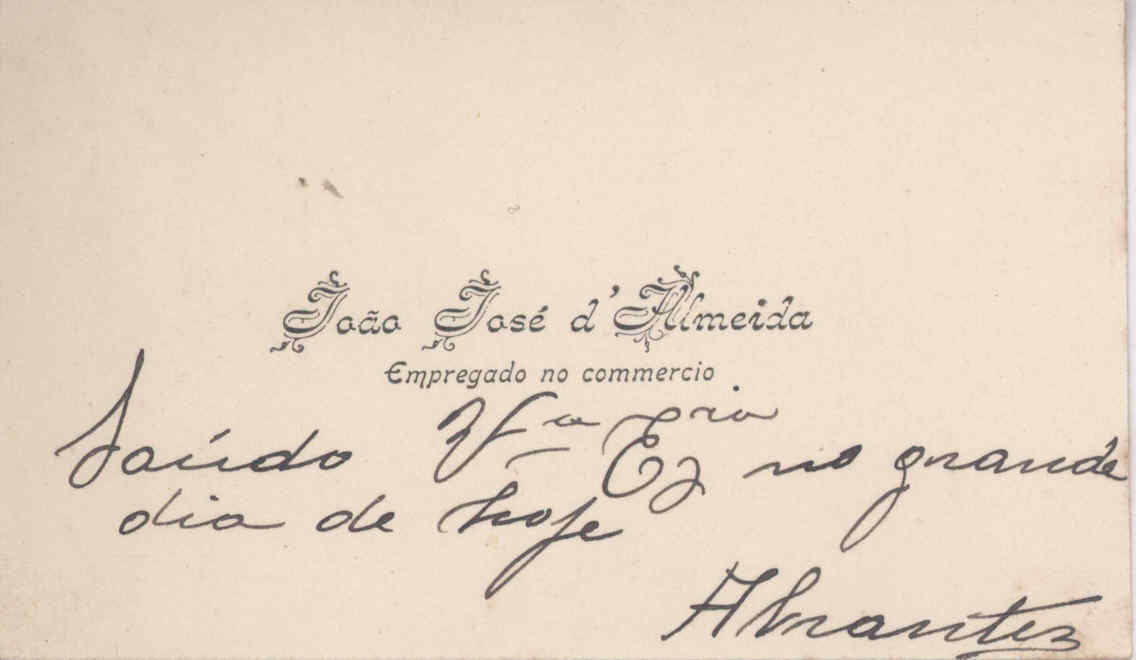 João José d'Almeida
Empregado no commercio
Saúdo Vª Exª no grande
dia de hoje
Abrantes